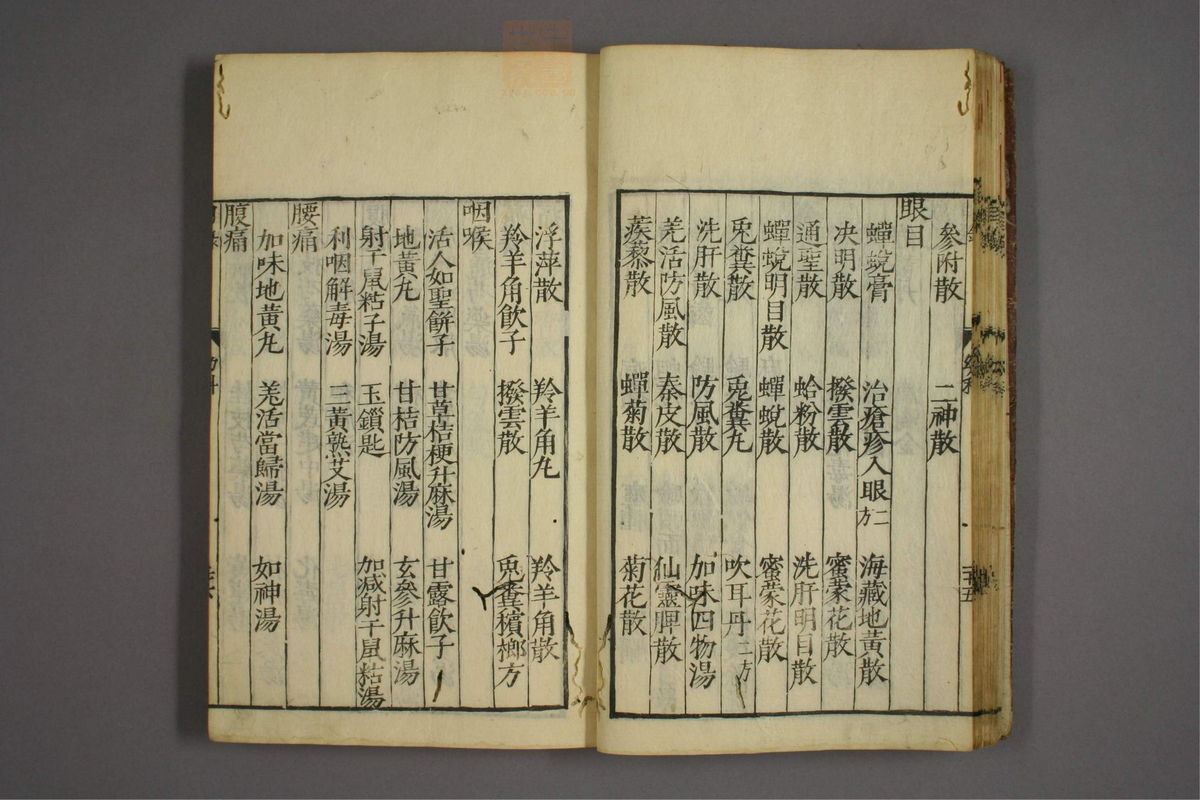 參附散 二神散
眼目
蟬蛻膏 治瘡疹入眼二方 海藏地黃散
决明散 撥雲散 蜜蒙花散
通聖散 蛤粉散 洗肝明目散
蟬蛻明目散 蟬蛻散 蜜蒙花散
兎糞散 兎糞丸 吹耳丹二方
洗肝散 防風散 加味四物湯
羌活防風散 秦皮散 仙靈脾散
蒺藜散 蟬菊散 菊花散
浮萍散 羚羊角丸 羚羊角散
羚羊角飲子 撥雲散 兎糞檳榔方
咽喉
活人如聖餅子 甘草桔梗升麻湯 甘露飲子
地黃丸 甘桔防風湯 玄參升麻湯
射干鼠粘子湯 玉鎖匙 加減射干鼠粘湯
利咽解毒湯 三黃熟艾湯
腰痛
加味地黃丸 羌活當歸湯 如神湯
腹痛